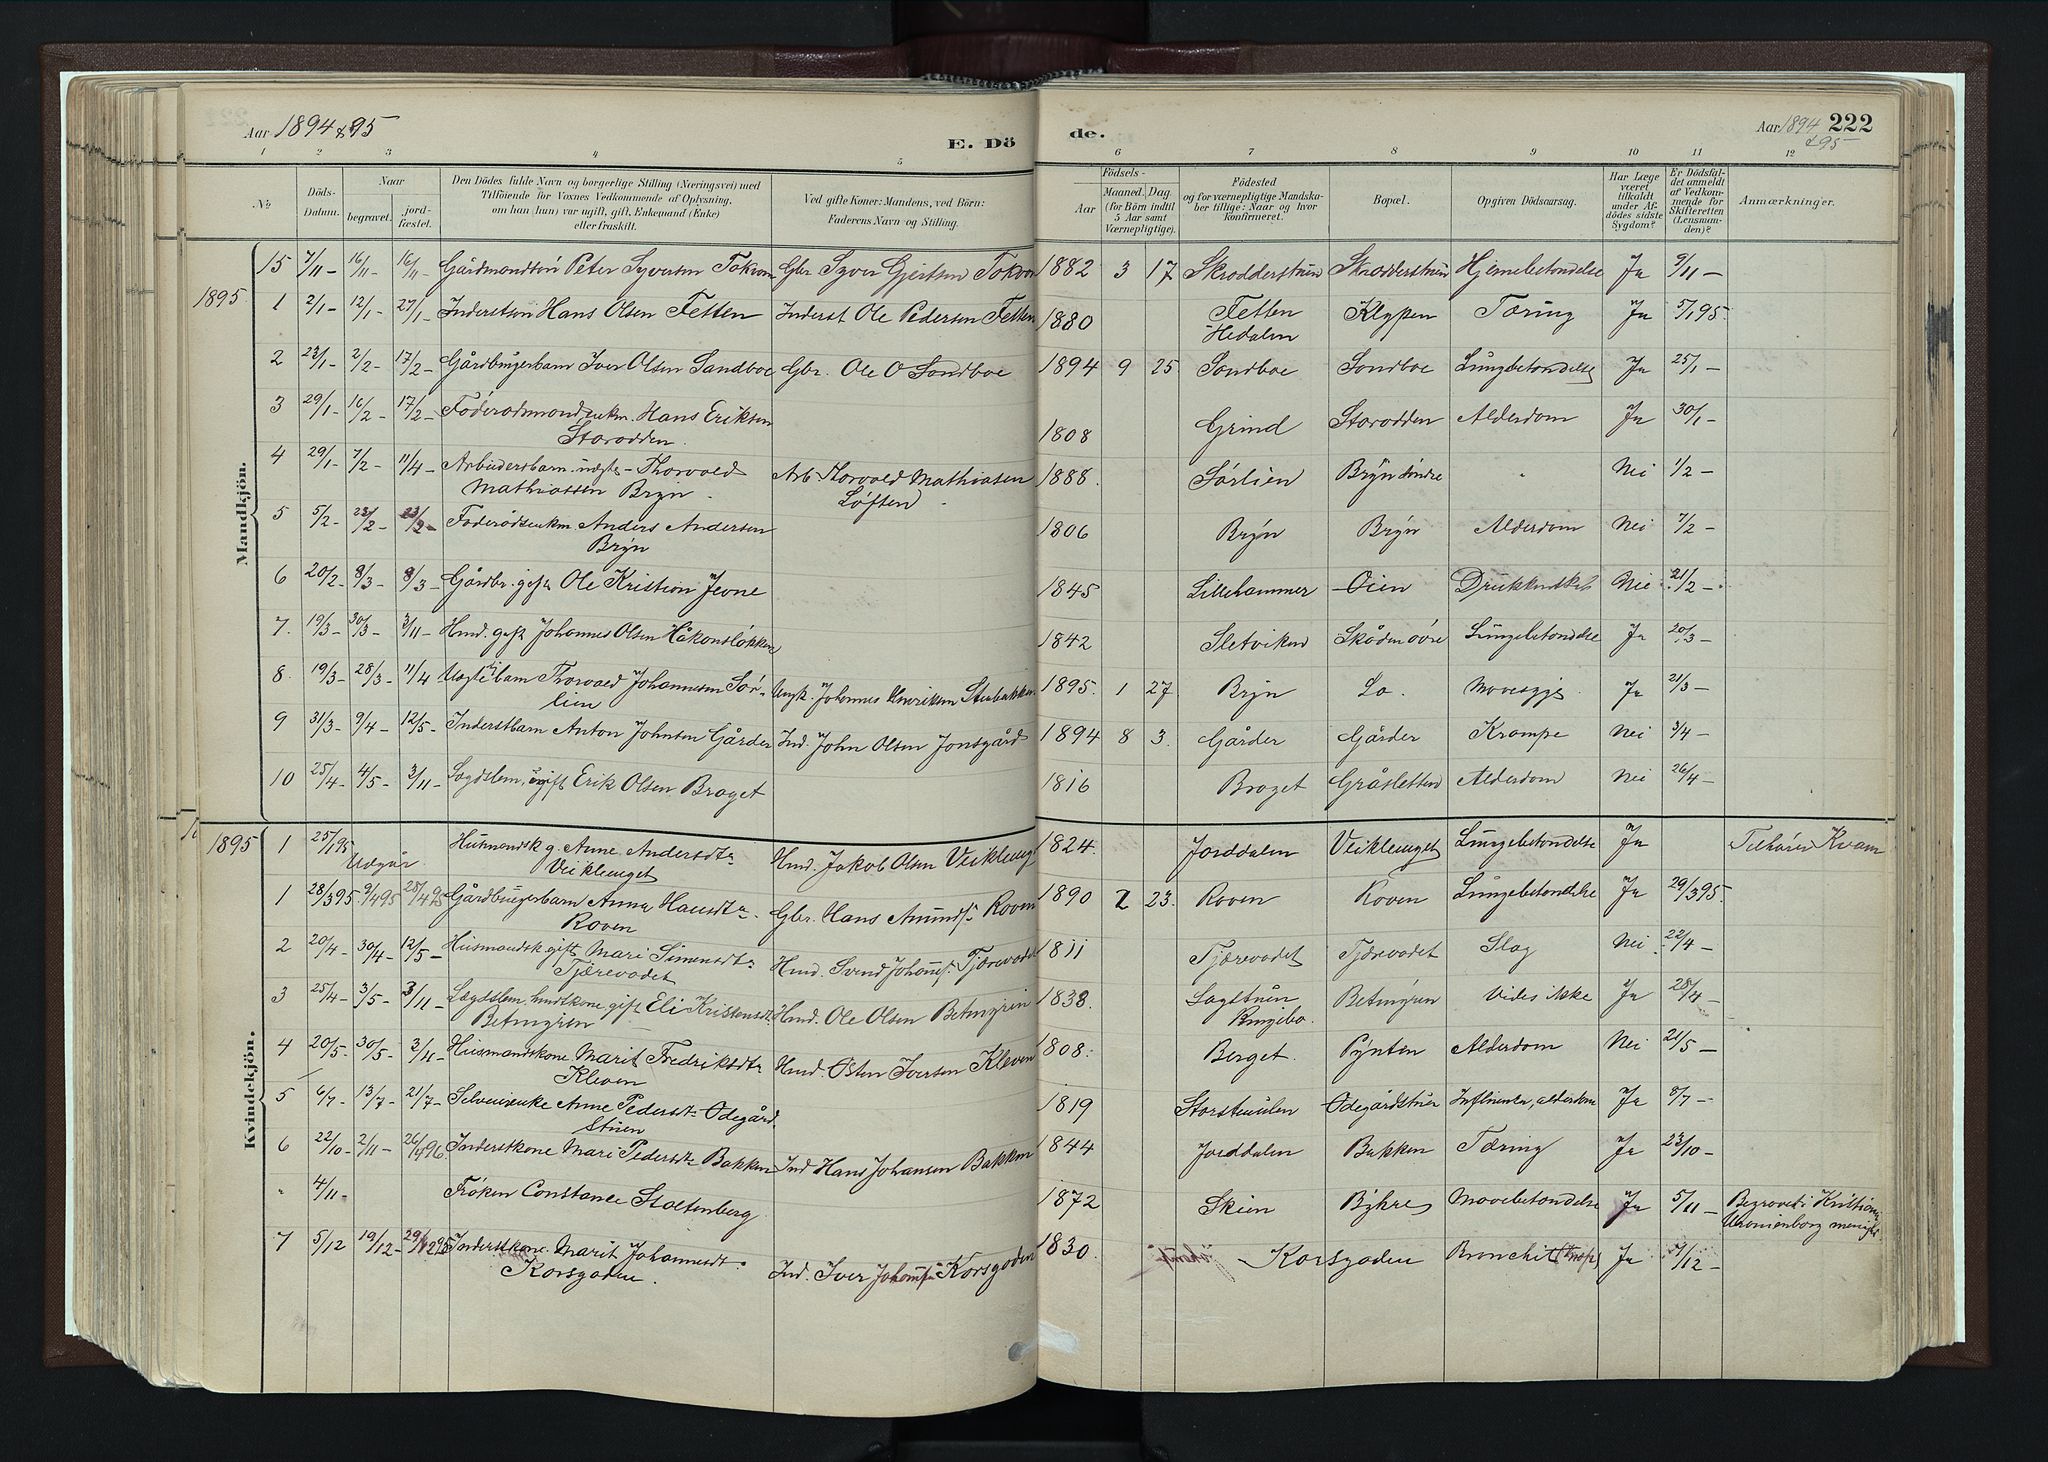 Aar 1894 & 95
E. Dö
de.
Aar 1894 & 95
222
1 2 3 4 5 6 7 8 9 10 11 12
No.
Döds-Datum.
Naar
begravet.
jord-fæstet.
Den Dödes fulde Navn og borgerlige Stilling (Næringsvei) med
Tilföiende for Voxnes Vedkommende af Oplysning,
om han (hun) var ugift, gift, Enkemand (Enke)
eller fraskilt.
Ved gifte Koner: Mandens, ved Börn:
Faderens Navn og Stilling.
Födsels-
Aar
Maaned. Dag.
(for Börn indtil
5 Aar samt
Værnepligtige).
Födested
og for værnepligtige Mandska-
ber tillige: Naar og hvor
konfirmeret.
Bopæl.
Opgiven Dödsaarsag.
Har Læge
været
tilkaldt
under Af-
dödes sidste
Sygdom?
Er Dödsfal-
det anmeldt
af Vedkom-
mende for
Skifteretten
(Lensman-
den)?
Anmærkninger.
Mandkjön.
15 7/11- 16/11- 16/11- Peter Syversen Gbr. Syver 1882 3 17 Ja 9/11 -
1895 1 2/1- 12/1- 27/1- Hans Olsen Fetten Inderst Ole Pedersen Fetten 1880 Fetten Klypen Tæring Ja 5/1 95.
Hedalen
2 23/1- 2/2- 17/2- Gårdbrugerbarn Iver Olsen Sandboe Gbr. Ole O Sandboe 1894 9 25 Sandboe Sandboe Lungebetændelse Ja 25/1 -
3 29/1- 16/2- 17/2- Hans Eriksen 1808 Grind Storodden Alderdom Ja 30/1 -
Storodden.
4 29/1- 7/2- 11/4- Arbeidersbarn Thorvald Arb. Torvald Mathiasen 1888. Sørlien Bryn søndre " Nei 1/2 -
Mathiassen Bryn. Løften
5 5/2- 23/2- 23/2- Anders Andersen 1806 Bryn Bryn Alderdom Nei 7/2 -
Bryn
6 20/2- 8/3- 8/3- Gårdbr. gift Ole Kristian Jevne 1845 Lillehammer Oien Nei 21/2 -
7. 19/3- 30/3- 3/11- Hmd. gift Johannes Olsen Håkonsløkken 1842 Sletviken Lungebetændelse Ja 20/3 -
8. 19/3- 28/3- 11/4 Thorvald Johannesen Sør- Johannes Henriksen 1895. 1 27. Bryn Lo. Ja 21/3 -
lien
9 31/3- 9/4- 12/5- Inderstbarn Anton Johnsen Gårder Ind. John Olsen Jonsgård 1894 8 3. Gårder Gårder Krampe Nei 3/4 -
10 25/4- 4/5- 3/11- Lægdslem, ugift Erik Olsen Braget 1816 Braget Gråsletten Alderdom Nei 26/4 -
Kvindekjön.
1895 1 25/1 95 Husmandsk g. Anne Andersdtr Hmd. Jakob Olsen Veiklenget 1824. Jorddalen Veiklenget Lungebetændelse Ja Tilhører Kvam
Udgår Veiklenget
1 28/3 95 9/4 95 28/4 95 Gårdbrugerbarn Anna Hansdtr. Gbr. Hans Amunds. Roven 1890 2 23. Roven Roven Lungebetændelse Ja 29/3 95.
Roven
2 20/4- 30/4- 12/5- Husmandsk. gift Mari Simensdtr Hmd. Svend Johans. Tjærevadet 1811 Tjærevadet Tjærevadet Slag Nei 22/4 -
Tjærevadet
3 25/4- 3/5- 3/11- Lægdslem, gift Eli Kristensdt. Hmd. Ole Olsen 1838. Vides ikke Ja 28/4 -
Ringebo.
4 20/5- 30/5- 3/11- Husmandskone Marit Fredriksdtr Hmd. Østen Iversen Kleven 1808. Berget. Pynten Alderdom Nei 21/5 -
Kleven
5 6/7- 13/7- 21/7- Anne Pedersdt. Ødegård 1819 Ødegårdstuen Influenza, alderdom Ja 8/7 -
stuen
6 22/10- 2/11- 26/4 96. Inderstkone Mari Pedersdtr Bakken Ind Hans Johansen Bakken 1844 Jorddalen Bakken Tæring Ja 23/10 -
" 4/11- Frøken Constance Stoltenberg 1872 Skien Bykre Mavebetændelse Ja 5/11 - Begravet i Kristiania
Uranienborg menighed
7 5/12 19/12- Inderstkone Marit Johannesdt. Ind. Iver Johans. Korsgaden 1830. Korsgaden Ja 7/12 -
Korsgaden.